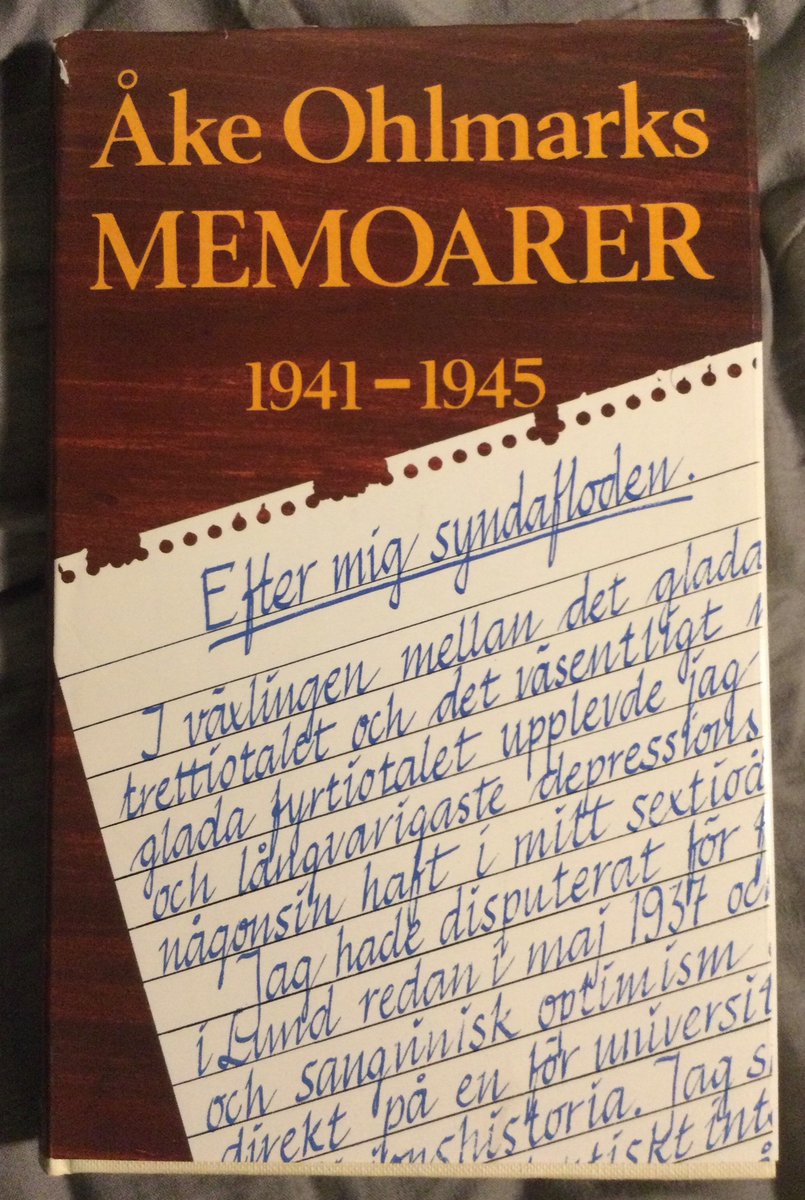 Åke Ohlmarks
MEMOARER
1941–1945
Efter mig syndafloden.
I växlingen mellan det glada
trettiotalet och det väsentligt
glada fyrtiotalet upplevde jag
och långvarigaste depressions
någonsin haft i mitt sextioå
Jag hade disputerat för
i Lund redan i maj 1937 oc
och sangvinisk optimism
direkt på en för universit
onshistoria. Jag s
tiskt int